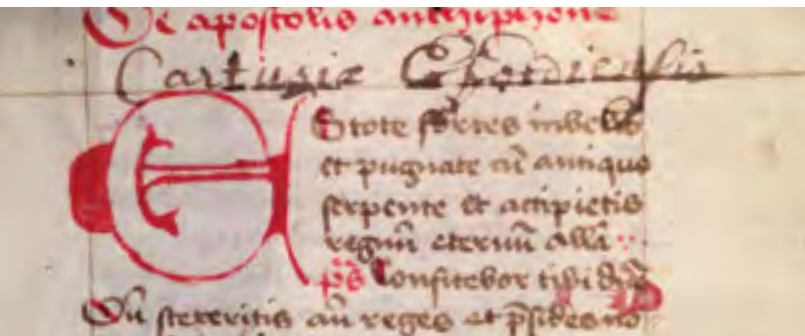 De apostolis anthiphone
Cartusie
Estote fortes in bello
et pugnate cū antiquo
serpente et accipietis
regnū eternū allā
ps Confitebor tibi dn̄e
Dū steteritis an̄ reges et p̄sides no